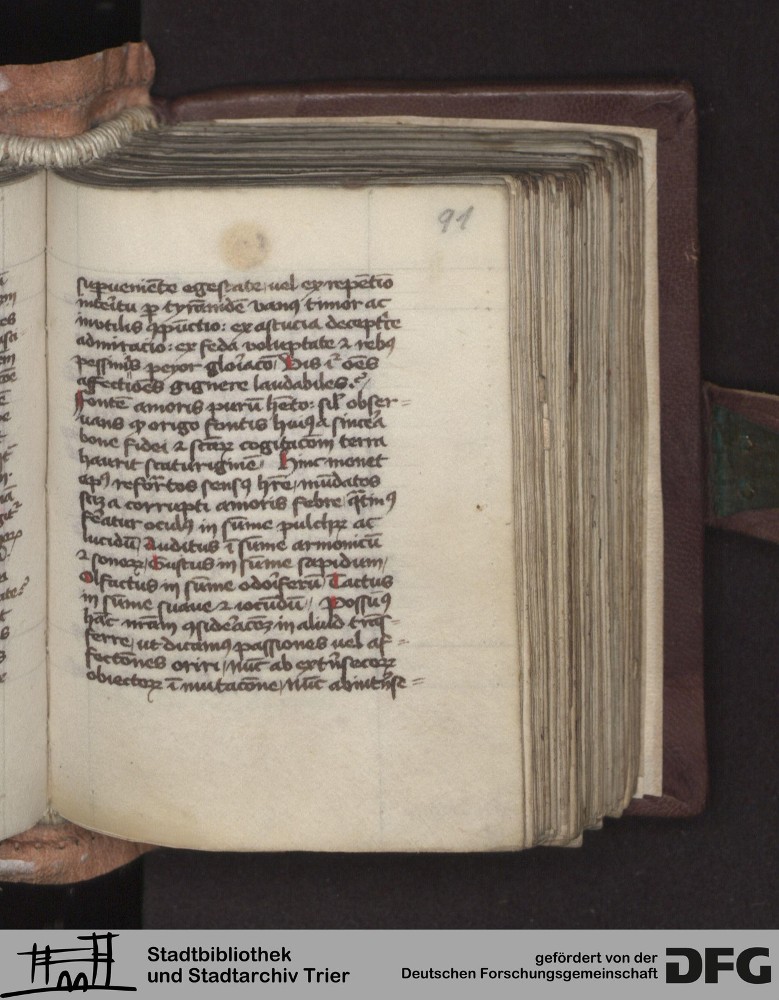 91
supueniēte egestate uel ex repētīo
int̄itu p tyrānidē vanꝯ timor ac
inutilis ꝯpūctio : ex astucia deceptīe
admiracio : ex feda voluptate ⁊ rebꝫ
pessimīs peyor glōiacō Bis ī oēs
affectiōes gignere laudabiles
Fontē amoris purū hēto : sil̄ obser=
uans qͥ origo fontis huiꝯ a sincēa
bone fidei ⁊ scāꝝ cogitacōm terra
haurit scaturiginē Hinc monet
apꝰ refōrtos sensꝯ hr̄e mūdatos
scꝫ a corrupti amoris febre q̄tinꝯ
fēatur oculꝯ in sūme pulchꝝ ac
lucidū / Auditus ī sūme armonicū
⁊ sonoꝝ / Gustus in sūme sapidum /
Olfactus in sūme odōiferū Tactus
in sūme suaue ⁊ iocūdū // Possumꝯ
hāc nr̄am ꝯsidēacōꝫ in aliud trās=
ferre / ut dicamꝯ passiones uel af=
fectōnes oriri / nūc ab extⁱnsecoꝝ
obiectoꝝ ī mutacōne / nūc ab intⁱnse=
Stadtbibliothek
und Stadtarchiv Trier
gefördert von der
Deutschen Forschungsgemeinschaft
DFG